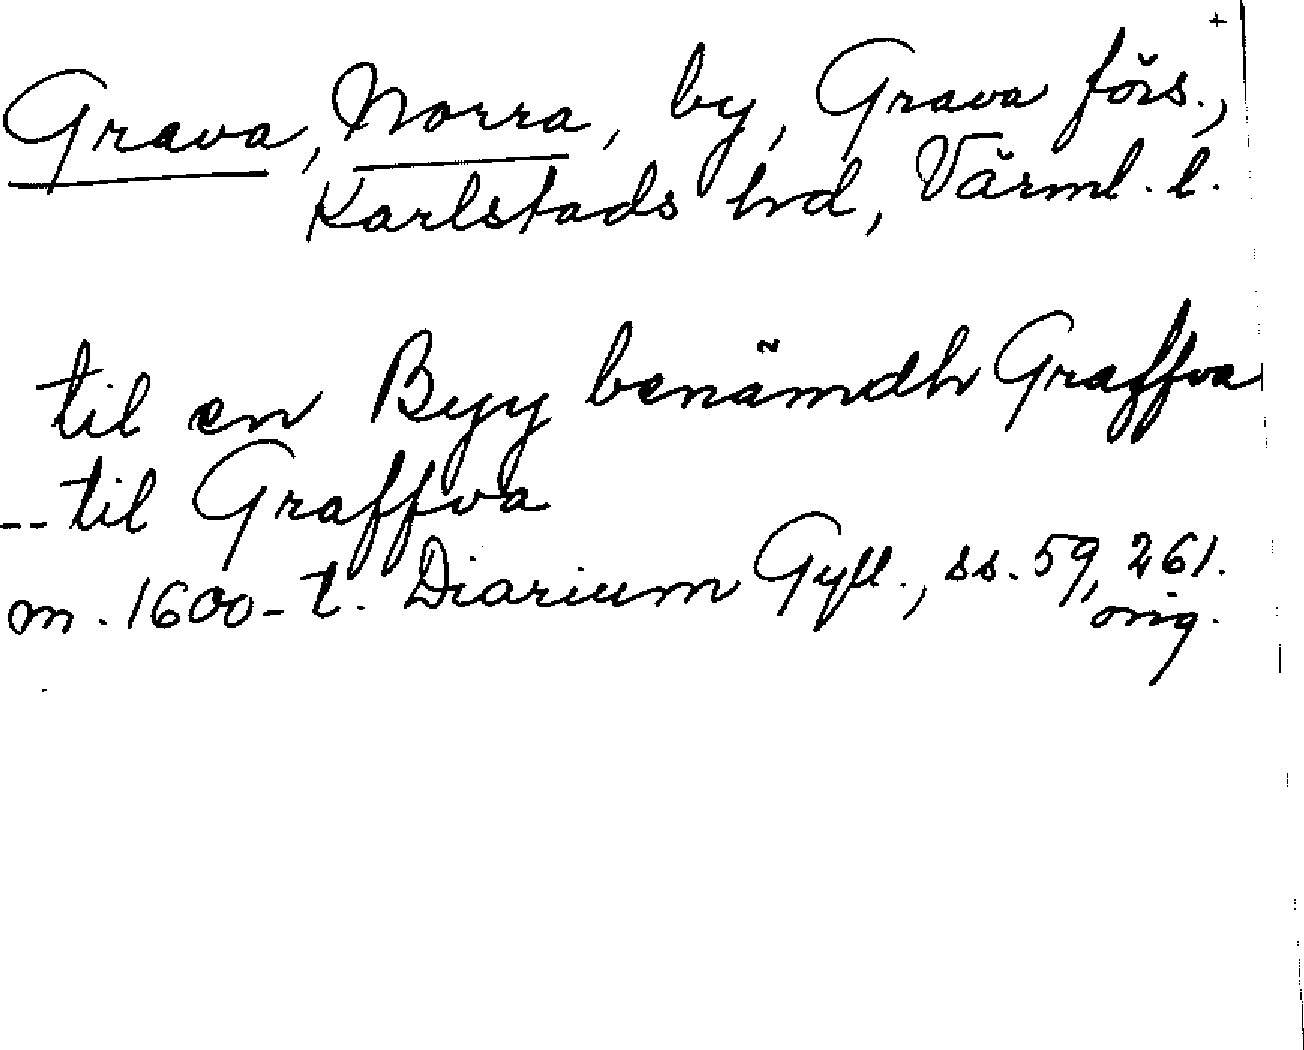 +
Grava, Norra, by, Grava förs.,
Karlstads hd, Värml. l.
til en Byy benämdh Graffva
-- til Graffva
m. 1600-t. Diarium Gyll., ss. 59, 261.
orig.